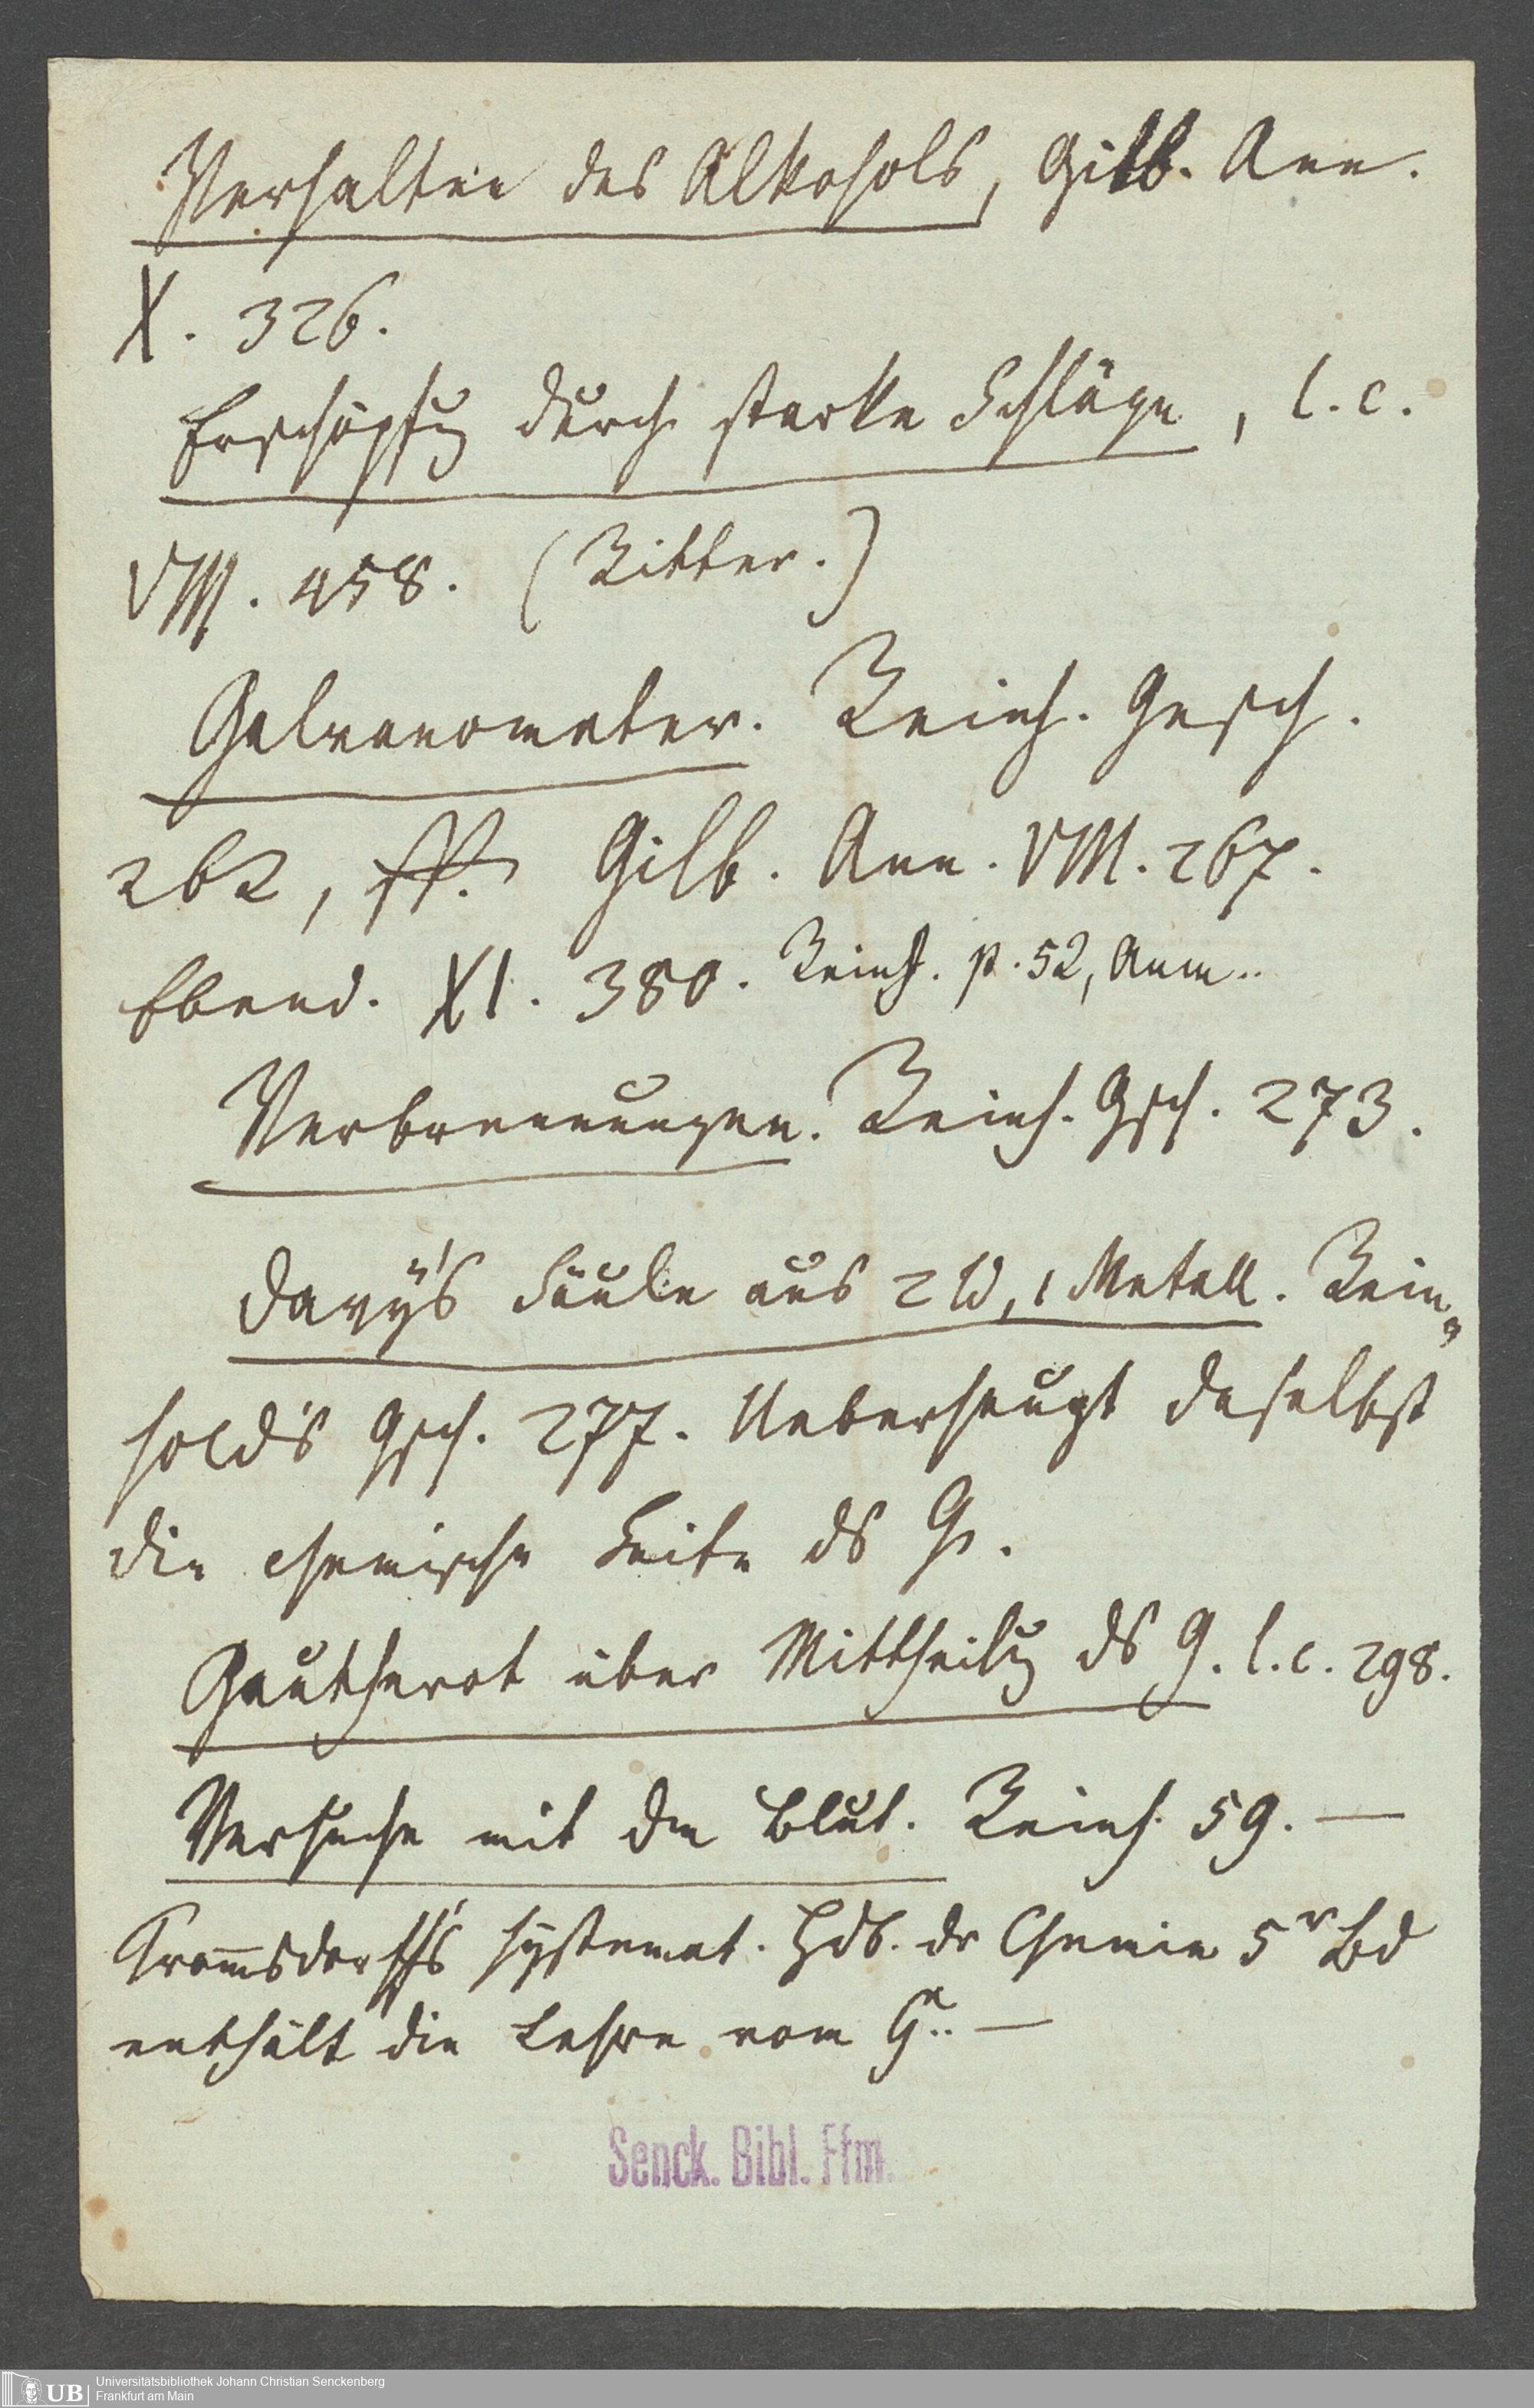 Verhalten des Alkohols, Gilb. Ann.
X. 326.
Erschöpfg durch starke Schläge, l. c.
VIII. 458. (Ritter.)
Galvanometer. Reinh. Gesch.
262, ff. Gilb. Ann. VIII. 267.
Ebend. XI. 380. Reinh. p. 52, Anm..
Verbrennungen. Reinh. Gsch. 273.
Davy's Säule aus 2 W, 1 Metall. Rein„
hold's Gsch. 277. Ueberhaupt daselbst
die chemische Seite ds G.
Gautherot über Mittheilg ds G. l. c. 298.
Versuche mit dem Blut. Reinh. 59. —
Trom̅sdorff's systemat. Hdb. dr Chemie 5r Bd
enthält die Lehre vom G.. —
Senck. Bibl. Ffm.
UB
Universitätsbibliothek Johann Christian Senckenberg
Frankfurt am Main